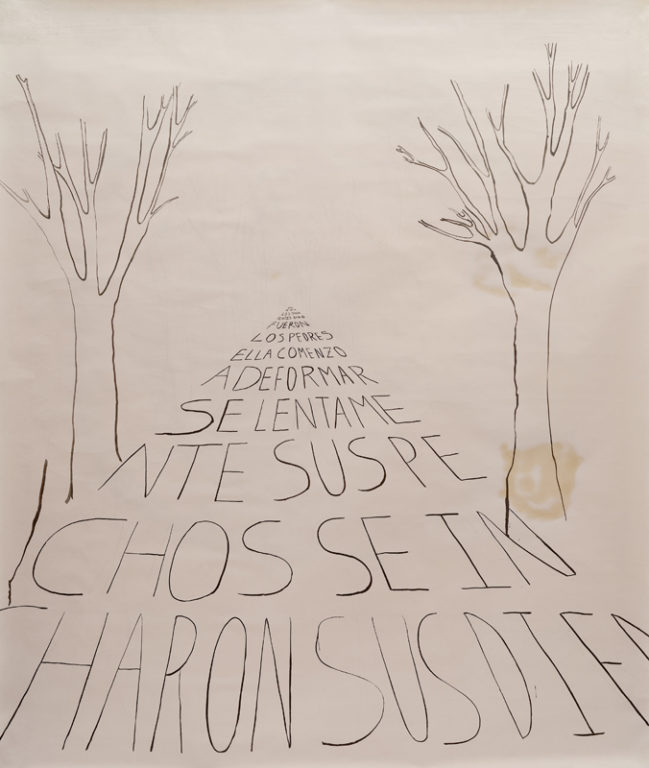 FUERON
LOS PEORES
ELLA COMENZO
A DEFORMAR
SE LENTAME
NTE SUS PE
CHOS SE IN
CHARON SUS DIEN